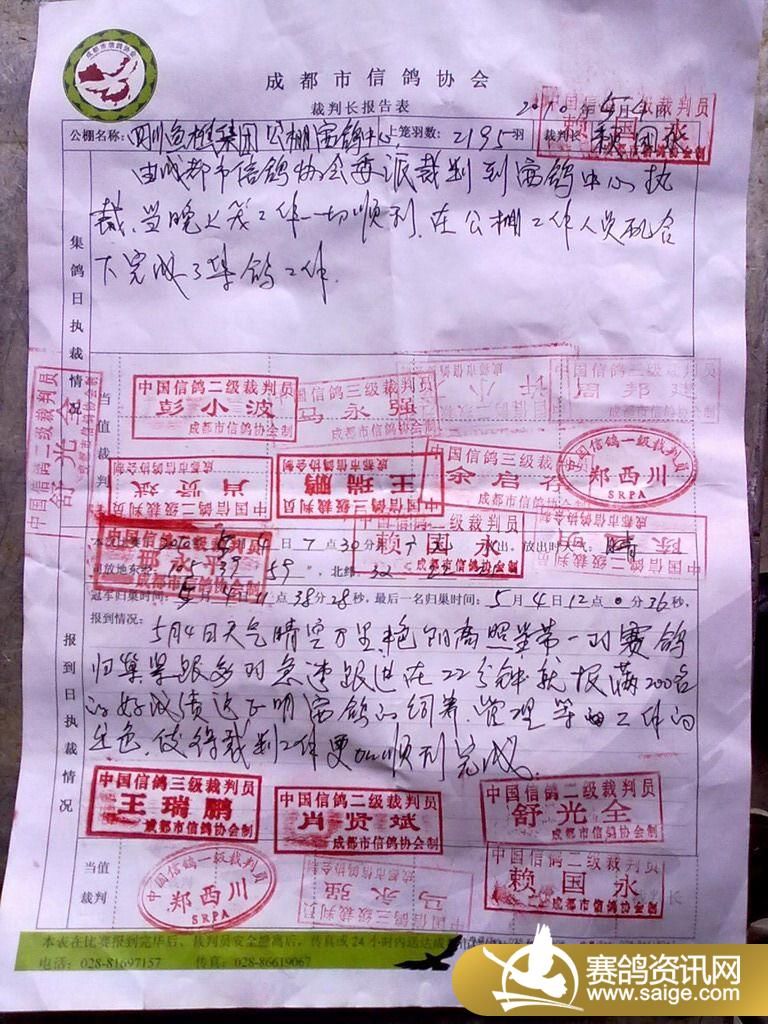 成都市信鸽协会
成都市信鸽协会
裁判长报告表
2010年5月4日
公棚名称: 四川 集团公棚赛鸽中心 上笼羽数: 2195羽 裁判长 赖国永
集鸽日执裁情况
由成都市信鸽协会委派裁判到赛鸽中心执
裁,当晚上笼工作一切顺利,在公棚工作人员配合
下完成了集鸽工作.
当值裁判
中国信鸽二级裁判员
彭小波
成都市信鸽协会制
中国信鸽三级裁判员
马永强
成都市信鸽协会制
中国信鸽二级裁判员
周邦建
成都市信鸽协会制
中国信鸽二级裁判员
舒光全
成都市信鸽协会制
肖贤斌
成都市信鸽协会制
中国信鸽三级裁判员
王瑞鹏
成都市信鸽协会制
中国信鸽三级裁判员
余启
成都市信鸽协会制
中国信鸽一级裁判员
郑西川
SRPA
中国信鸽二级裁判员
赖国永
成都市信鸽协会制
2010 5月4日7点30分 放出,放出时天气: 晴
司放地东经: 105 39 59,北纬: 32
冠军归巢时间: 5月4日11点38分28秒,最后一名归巢时间: 5月4日12点0分36秒,
报到日执裁情况
报到情况:
5月4日天气晴空万里,艳阳高照,第一羽赛鸽
归巢,紧跟多羽急速跟进在22分钟就报满200名
的好成绩,这证明赛鸽的饲养、管理等的工作的
出色,使得裁判工作更加顺利完成。
中国信鸽三级裁判员
王瑞鹏
成都市信鸽协会制
中国信鸽二级裁判员
肖贤斌
成都市信鸽协会制
中国信鸽二级裁判员
舒光全
成都市信鸽协会制
当值裁判
中国信鸽一级裁判员
郑西川
SRPA
中国信鸽三级裁判员
马永强
成都市信鸽协会制
中国信鸽二级裁判员
赖国永
成都市信鸽协会制
本表在比赛报到完毕后、裁判员安全撤离后,传真或24小时内送达成
电话: 028-81697157 传真: 028-86619067
赛鸽资讯网
www.saige.com